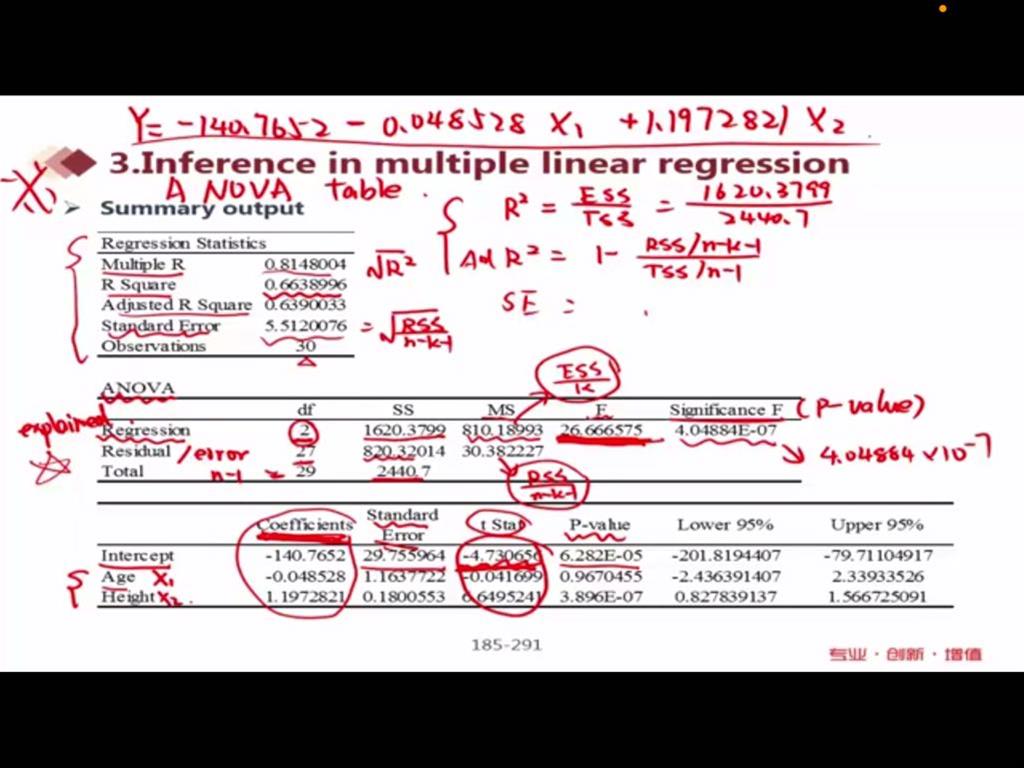 Y = -140.7652 - 0.048528 X₁ + 1.1972821 X₂
3.Inference in multiple linear regression
-X₁
ANOVA table.
➤ Summary output
R² = ESS/TSS = 1620.3799/2440.7
Ad R² = 1- RSS/n-k-1 / TSS/n-1
SE =
Regression Statistics
Multiple R 0.8148004 √R²
R Square 0.6638996
Adjusted R Square 0.6390033
Standard Error 5.5120076 = √RSS/n-k-1
Observations 30
ESS/k
ANOVA
df SS MS F Significance F (P-value)
explained Regression 2 1620.3799 810.18993 26.666575 4.04884E-07
Residual /error 27 820.32014 30.382227
4.04884 ×10⁻⁷
n-1 = Total 29 2440.7
RSS/n-k-1
Coefficients Standard Error t Stat P-value Lower 95% Upper 95%
Intercept -140.7652 29.755964 -4.730656 6.282E-05 -201.8194407 -79.71104917
Age X₁ -0.048528 1.1637722 -0.041699 0.9670455 -2.436391407 2.33933526
Height X₂. 1.1972821 0.1800553 6.6495241 3.896E-07 0.827839137 1.566725091
185-291
专业·创新·增值